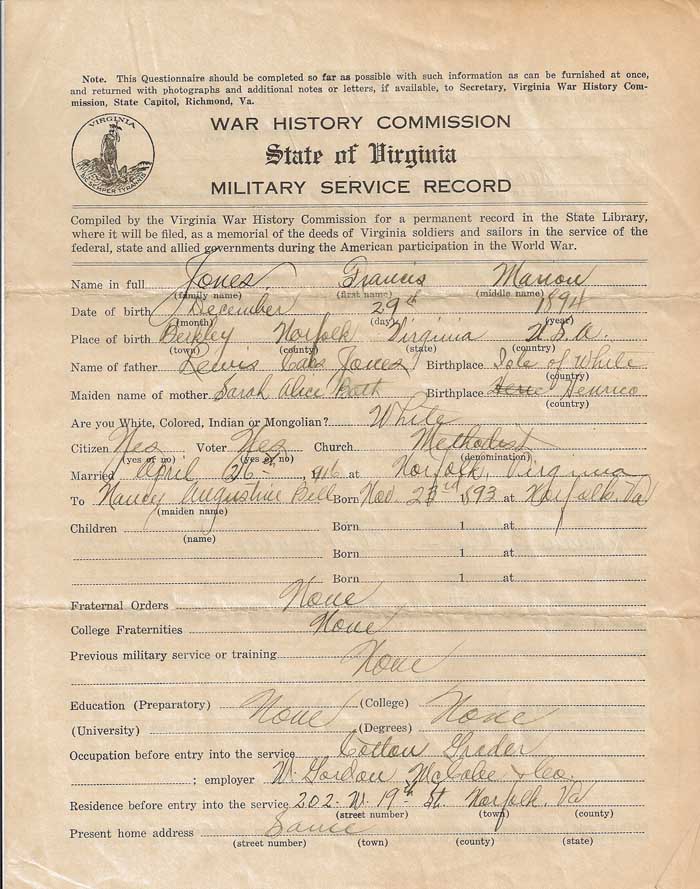 Note. This Questionnaire should be completed so far as possible with such information as can be furnished at once,
and returned with photographs and additional notes or letters, if available, to Secretary, Virginia War History Com-
mission, State Capitol, Richmond, Va.
VIRGINIA
SIC SEMPER TYRANNIS
WAR HISTORY COMMISSION
State of Virginia
MILITARY SERVICE RECORD
Compiled by the Virginia War History Commission for a permanent record in the State Library,
where it will be filed, as a memorial of the deeds of Virginia soldiers and sailors in the service of the
federal, state and allied governments during the American participation in the World War.
Name in full Jones, Francis Marion
(family name) (first name) (middle name)
Date of birth December 29th 1894
(month) (day) (year)
Place of birth Berkley Norfolk Virginia U.S.A.
(town) (county) (state) (country)
Name of father Lewis Jones Birthplace Isle of White
(county)
Maiden name of mother Sarah Alice Birthplace Henrico
(county)
Are you White, Colored, Indian or Mongolian? White
Citizen Yes Voter Yes Church Methodist
(yes or no) (yes or no) (denomination)
Married April 26th, 1916 at Norfolk, Virginia
To Nancy Augustine Bell Born Nov. 23rd 1893 at Norfolk, Va
(maiden name)
Children Born 1 at
(name)
Born 1 at
Born 1 at
Fraternal Orders None
College Fraternities None
Previous military service or training None
Education (Preparatory) None (College) None
(University) (Degrees)
Occupation before entry into the service Cotton Grader
; employer W. Gordon McCabe & Co.
Residence before entry into the service 202 W. 19th St. Norfolk, Va
(street number) (town) (county)
Present home address Same
(street number) (town) (county) (state)